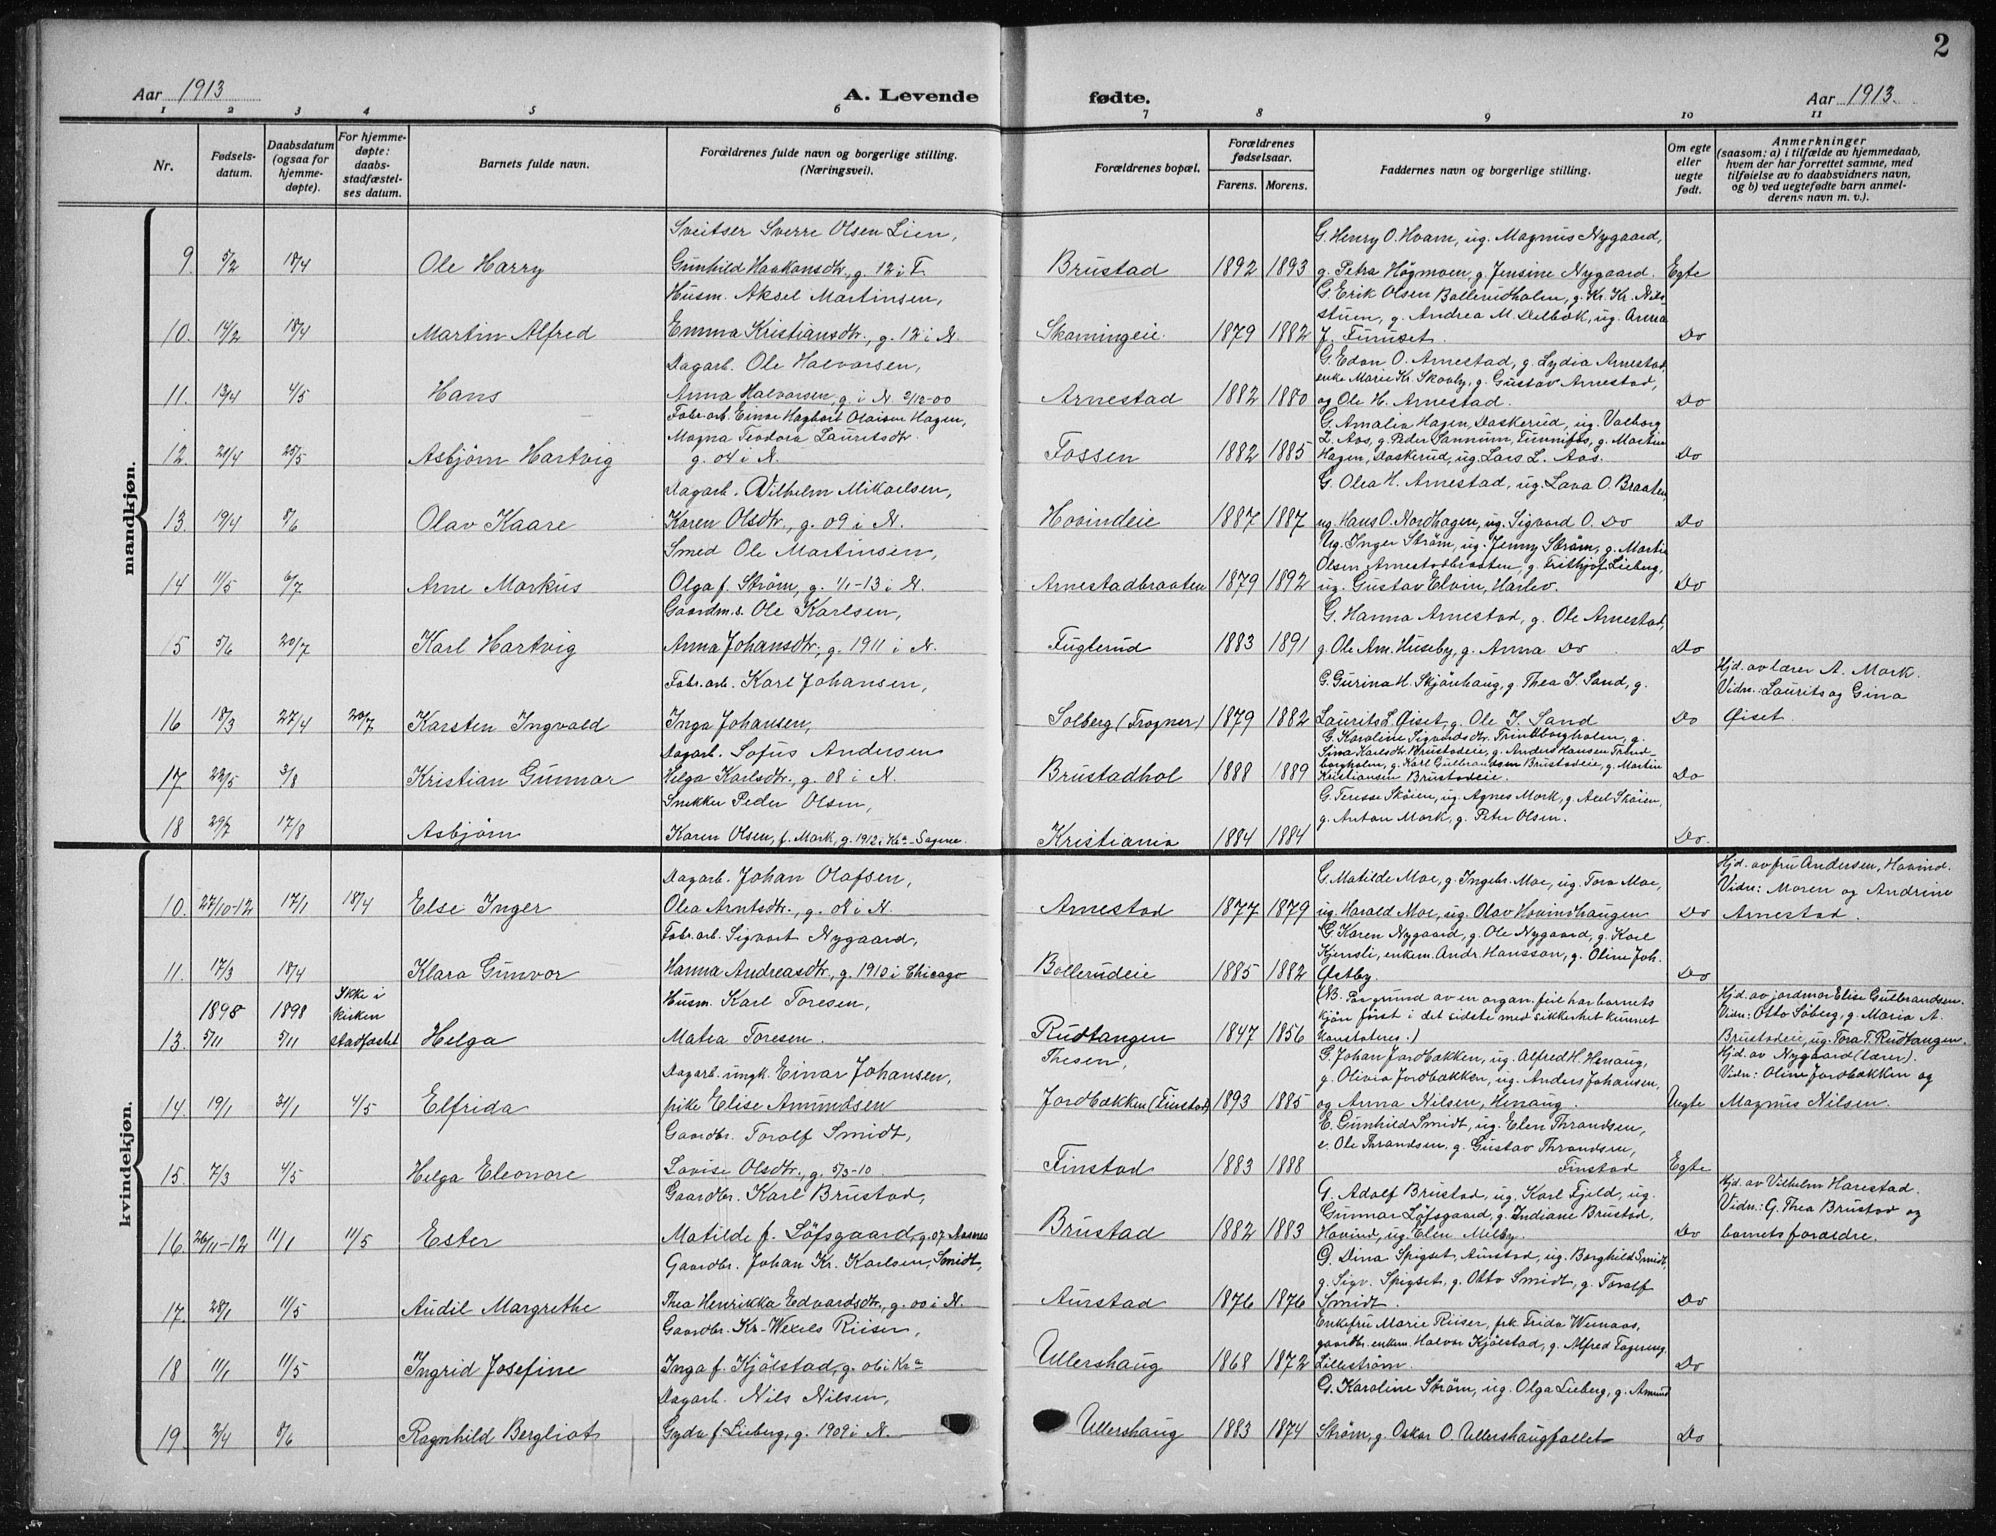 2
Aar 1913
A. Levende
fødte.
Aar 1913.
1 2 3 4 5 6 7 8 9 10 11
Nr.
Fødsels-
datum.
Daabsdatum
(ogsaa for
hjemme-
døpte).
For hjemme-
døpte:
daabs-
stadfæstel-
ses datum.
Barnets fulde navn.
Forældrenes fulde navn og borgerlige stilling.
(Næringsvei).
Forældrenes bopæl.
Forældrenes
fødselsaar.
Farens. Morens.
Faddernes navn og borgerlige stilling.
Om egte
eller
uegte
født.
Anmerkninger
(saasom: a) i tilfælde av hjemmedaab,
hvem der har forrettet samme, med
tilføielse av to daabsvidners navn,
og b) ved uegtefødte barn anmel-
derens navn m. v.).
mandkjøn.
Sveitser Sverre Olsen Lien,
G. Henry O. Hvam, ug. Magnus Nygaard,
9 5/2 18/4 Ole Harry Gunhild Haakonsdtr., g. 12 i F. Brustad 1892 1893 g. Petra Høgmoen, g. Jensine Nygaard. Egte
Husm. Aksel Martinsen,
G. Erik Olsen Bollerudholen, g. Kr. Kr. Nils-
stuen, g. Andrea M. Delbæk, ug. Anna
10. 14/2 18/4 Martin Alfred Emma Kristiansdtr., g. 12 i N. Skamingeie 1879 1882 J. Furuset. Do
Dagarb. Ole Halvorsen,
G. Edon O. Arnestad, g. Lydia Arnestad,
enke Marie Kr. Skovby, g. Gustav Arnestad,
11. 13/4 4/5 Hans Anna Halvorsen, g. i N. 2/12-00 Arnestad 1882 1880 og Ole H. Arnestad. Do
Fabr.arb. Einar Hagbart Olaisen Hagen,
Magna Teodora Lauritsdtr.
G. Amalia Hagen, Daskerud, ug. Valborg
L. Aas, g. Peder Sannum, g. Martin
12. 21/4 25/5 Asbjørn Hartvig g. 04 i N. Fossen 1882 1885 Hagen, Daskerud, ug. Lars L. Aas. Do
Dagarb. Vilhelm Mikaelsen,
G. Olea H. Arnestad, ug. Lava O. Braaten,
13. 19/4 8/6 Olav Kaare Karen Olsdtr., g. 09 i N. Hovindeie 1887 1887 ug. Hans O. Nordhagen, ug. Sigvard O. Do Do
Smed Ole Martinsen,
Ug. Inger Strøm, ug. Jenny Strøm, g. Martin
Olsen Arnestadbraaten, g. Frithjof Lieberg,
14 11/5 6/7 Arne Markus Olga f. Strøm, g. 1/1-13 i N. Arnestadbraaten 1879 1892 ug. Gustav Elvin, Harlev. Do
Gaardm.s. Ole Karlsen,
G. Hanna Arnestad, g. Ole Arnestad,
15 5/6 20/7 Karl Hartvig Anna Johansdtr., g. 1911 i N. Fuglerud 1883 1891 g. Ole Am. Huseby, g. Anna Do Do
Fabr.arb. Karl Johansen,
G. Gurina H. Skjønhaug, g. Thea I. Sand, g.
Hjd. av lærer A. Mork.
Vidn.: Laurits og Gina
16 18/3 27/4 20/7 Karsten Ingvald Inga Johansen, Solberg (Frogner) 1879 1882 Laurits L. Øiset, g. Ole I. Sand Do Øiset.
Dagarb. Sofus Andersen
G. Karoline Sigvardsdtr. Trindborgholen, g.
Sina Karlsdtr. Brustadeie, g. Anders Hansen Trond-
borgholen, g. Karl Gulbrandsen Brustadeie, g. Martin
17 23/5 3/8 Kristian Gunnar Helga Karlsdtr., g. 08 i N. Brustadhol 1888 1889 Kristiansen Brustadeie. Do
Snekker Peder Olsen,
G. Teresse Skøien, ug. Agnes Mork, g. Axel Skøien,
g. Anton Mork, g. Peter Olsen.
18 29/7 17/8 Asbjørn Karen Olsen, f. Mork, g. 1912 i Kra.-Sagene. Kristiania 1884 1884 Do.
kvindekjøn.
Dagarb. Johan Olafsen,
G. Matilde Moe, g. Ingebr. Moe, ug. Tora Moe,
Hjd. av fru Andersen, Hovind.
Vidn: Maren og Andrine
10. 27/10-12 17/1 18/4 Else Inger Olea Arntsdtr., g. 08 i N. Arnestad 1877 1879 ug. Harald Moe, ug. Olav Hovindhaugen Do Arnestad.
Fabr.arb. Sigvart Nygaard,
G. Karen Nygaard, g. Ole Nygaard, g. Karl
Kjensli, enkem. Andr. Hansson, g. Oline Joh.
11. 17/3 18/4 Klara Gunvor Hanna Andreasdtr., g. 1910 i Chicago Bollerudeie 1885 1882 Østby. Do
1898 1898 Ikke i
kirken
Husm. Karl Toresen,
(NB. Paa grund av en organ. feil har barnets
kjøn først i det sidste med sikkerhet kunnet
Hjd. av jordmor Elise Gulbrandsen.
Vidn: Otto Søberg, g. Maria A.
13. 5/11 5/11 stadfæstet Helga Matea Toresen. Rudtangen 1847 1856 konstateres.) Brustadeie, ug. Tora T. Rudtangen.
Dagarb. ungk. Einar Johansen,
Thesen,
G. Johan Jordbækken, ug. Alfred H. Henaug,
g. Olivia Jordbækken, ug. Anders Johansen,
Hjd. av Nygaard (lærer).
Vidn: Oline Jordbækken og
14. 19/1 31/1 4/5 Elfrida pike Elise Amundsen Jordbækken (Finstad) 1893 1885 og Anna Nilsen, Henaug. Uegte Magnus Nilsen.
Gaardbr. Toralf Smidt,
E. Gunhild Smidt, ug. Elen Thrandsen,
e. Ole Thrandsen, g. Gustav Thrandsen,
15. 7/3 4/5 Helga Eleonore Lovise Olsdtr., g. 5/3-10. Finstad 1883 1888 Finstad Egte
Gaardbr. Karl Brustad,
G. Adolf Brustad, ug. Karl Fjeld, ug.
Gunnar Løfsgaard, g. Indiane Brustad,
Hjd. av Vilhelm Harestad.
Vidn.: G. Thea Brustad og
16. 26/11-12 11/1 11/5 Ester Matilde f. Løfsgaard, g. 07 Aasnes Brustad 1882 1883 Hovind, ug. Elen Melby. Do barnets forældre.
Gaardbr. Johan Kr. Karlsen, Smidt,
G. Dina Spigset, Aurstad, ug. Borghild Smidt,
g. Sigv. Spigset, g. Otto Smidt, g. Toralf
17. 28/1 11/5 Audil Margrethe Thea Henrikka Edvardsdtr., g. 00 i N. Aurstad 1876 1876 Smidt. Do
Gaardbr. Kr. Wexels Riiser,
Enkefru Marie Riiser, frk. Frida Wennaas,
gaardbr. enkem. Halvor Kjølstad, g. Alfred Fagereng,
18 11/1 11/5 Ingrid Josefine Inga f. Kjølstad, g. 06 i Kra Ullershaug 1868 1872 Lillestrøm. Do
Dagarb. Nils Nilsen,
G. Karoline Strøm, ug. Olga Lieberg, g. Amund
19. 2/4 8/6 Ragnhild Bergliot Gyda f. Lieberg, g. 1909 i N. Ullershaug 1883 1874 Strøm, g. Oskar O. Ullershaugfallet Do